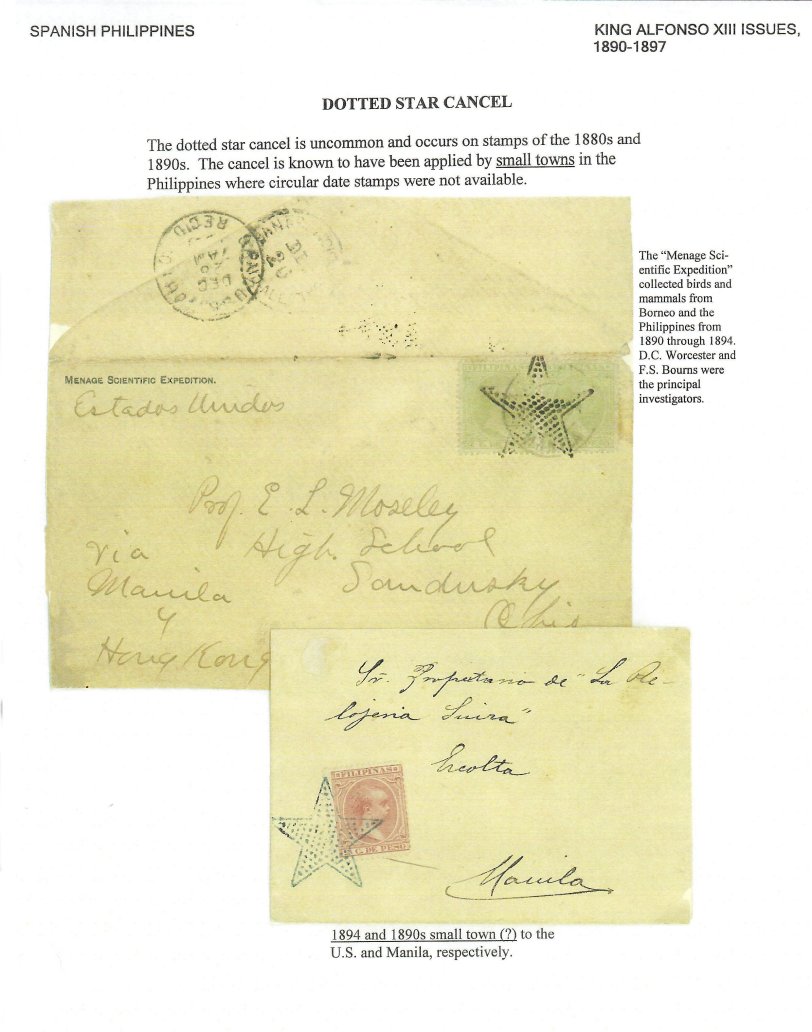 SPANISH PHILIPPINES
KING ALFONSO XIII ISSUES,
1890-1897
DOTTED STAR CANCEL
The dotted star cancel is uncommon and occurs on stamps of the 1880s and
1890s. The cancel is known to have been applied by small towns in the
Philippines where circular date stamps were not available.
The “Menage Sci-
entific Expedition”
collected birds and
mammals from
Borneo and the
Philippines from
1890 through 1894.
D.C. Worcester and
F.S. Bourns were
the principal
investigators.
REC'D
AM
DEC
MENAGE SCIENTIFIC EXPEDITION.
Estados Unidos
Prof. E. L. Moseley
High School
Sandusky
Ohio
via
Manila
y
Hong Kong
Sr. Propietario de "La Re-
lojeria Suiza"
Escolta
Manila
FILIPINAS
C. DE PESO
1894 and 1890s small town (?) to the
U.S. and Manila, respectively.